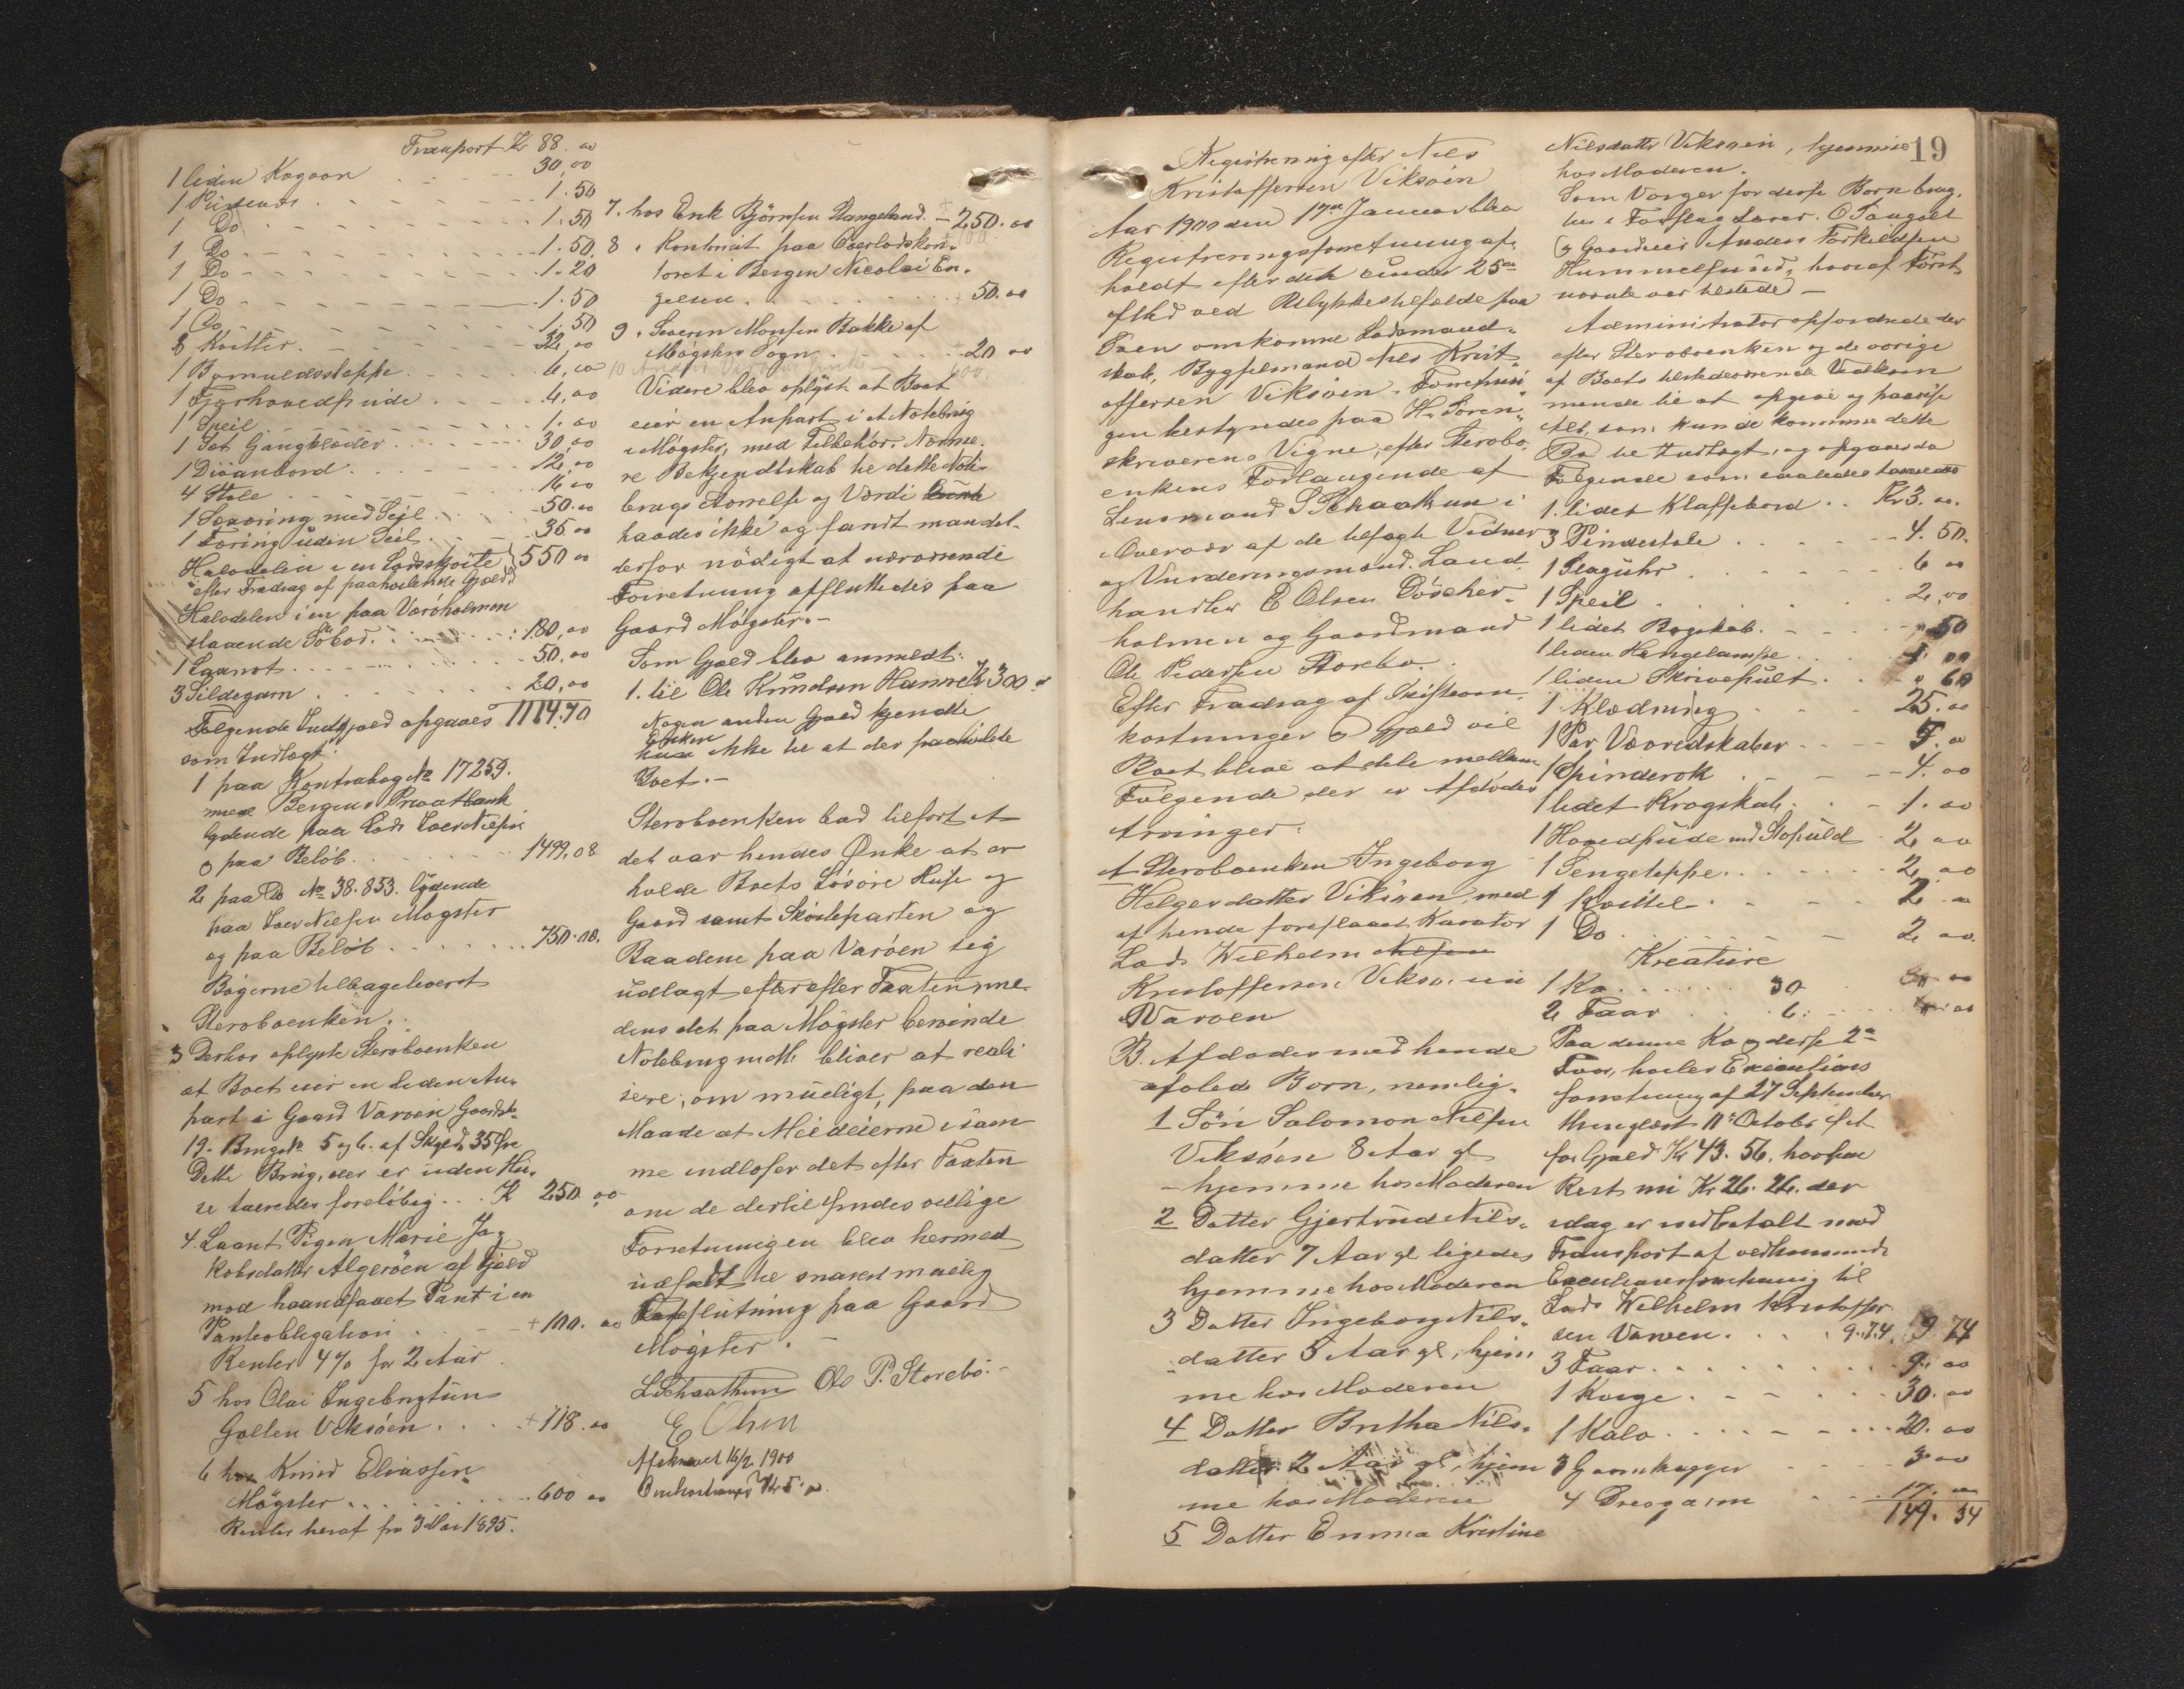 Transport Kr 88.00
1 liden Kagoon 30,00
1 1.50
1 Do 1.50
1 Do 1.50
1 Do 1.20
1 Do 1.50
1 Do 1.50
8 Kvitler 32,00
1 Bomuldsteppe 6,00
1 Fjærhovedpude 4,00
1 Speil 1.00
1 Sæt Gangklæder 30,00
1 Divanbord 12,00
4 Stole 16,00
1 Sexæring med Seil 50.00
1 Færing uden Seil 35.00
Halvdelen i en Lodsskøite } 550 00
efter Fradrag af paahvilende Gjæld
Halvdelen i en paa Varøholmen
staaende Søbod 180,00
1 Garnot 50,00
3 Sildegarn 20,00
Følgende Indtgjæld opgaves 1114.70
som Indlagt
1 paa Kontrabog No 17259.
med Bergens Privatbank
lydende paa Lods Iver Nilsen
o paa Beløb 1499,08
2 paa Do No 38.853. lydende
paa Iver Nilsen Møgster
og paa Beløb 750.00.
Bøgerne tilbageleveret
Sterboenken.
3 Derhos oplyste Sterboenken
at Boet eier en liden An-
part i Gaard Varøen Gaards-
19. Brugsn 5 og 6. af Skyld 35 Øre
Dette Brug, der er uden Hu-
se taxeredes foreløbig Kr 250.00
4. Laant Pigen Marie Ja-
kobsdatter Algerøen af Gjeld
mod haandfaaet Pant i en
Panteobligation +100.00
Renter 4% for 2 Aar
5 hos Olai Ingebrigtsen
Gallen Viksøen +118.00
6 hos Knud Eliassen
Møgster 600 00
Renter heraf fra 3 Mai 1895.
7. hos Erik Bjørnsen Dangeland. - 250.00
8 " Kontorist paa Overlodskon-
toret i Bergen Nicolai En-
gelsen 50.00
9 " Severin Monsen Bakke af
Møgster Sogn 20 00
Videre blev oplyst at Boet
eier en Anpart i et Notebrug
i Møgster, med Tilbehør. Nærme-
re Bekjendtskab til dette Note-
brugs Størrelse og Værdi
haves ikke og fandt man det
derfor nødigt at nærværende
Forretning afsluttedes paa
Gaard Møgster.-
Som Gjæld blev anmeldt:
1. til Ole Knudsen Hanne Kr 300.00
Nogen anden Gjæld kjendte
Enken
ikke til at der paahvilede
Boet.-
Sterboenken bad tilført at
det var hendes Ønke at er
holde Boets Løsøre Huse og
Gaard samt Skøiteparten og
Baadene paa Varøen sig
udlagt efter efter Taxten, me-
dens det paa Møgster værende
Notebrug maatte bliver at reali
sere, om mueligt, paa den
Maade at Medeierne i sam
me indløser det efter Taxten
om de dertil findes villige
Forretningen blev hermed
udsadt til snarest muelig
Fortslutning paa Gaard
Møgster.
L Schaathun Ole P. Storebø.-
E Olsen
Afskrevet 16/2 1900
Omkostninger Kr 5.00.
19
Registrering efter Nils
Kristoffersen Viksøen
Aar 1900 den 17de Januar blev
Registreringsforretning af-
holdt efter deth under 25de
f Md ved Ulykkestilfælde paa
Søen omkomne Lodsmand-
skab, Bygselmand Nils Krist-
offersen Viksøen. Forretnin
gen bestyredes paa Hr Soren-
skriverens Vegne, efter Sterbo-
enkens Forlangende af
Lensmand S Schaathun i
Overvær af de tilsagte Vidner
og Vurderingsmænd. Land
handler E Olsen Løscher-
holmen og Gaardmand
Ole Pedersen Storebø.
Efter Fradrag af Skifteom-
kostninger og Gjæld vil
Boet blive at dele mellem
Følgende, der er Afdødes
Arvinger:
A Sterboenken Ingeborg
Holgersdatter Viksøen, med
af hende foreslaaet Kurator
Lods Wilhelm Nilsen
Kristoffersen Viksø. nu
Varøen
B. Afdødes med hende
aflede Børn, nemlig.
1 Søn Salomon Nilsen
Viksøen 8 Aar gl
- hjemme hos Moderen
2 Datter Gjertrud Nils-
datter 7 Aar gl ligedes
hjemme hos Moderen
3 Datter Ingeborg Nils-
datter 5 Aar gl, hjem
me hos Moderen
4 Datter Britha Nils-
datter 2 Aar gl, hjem
me hos Moderen
5 Datter Emma Kristine
Nilsdatter Viksøen, hjemme
hos Moderen.
Som Værger for disse Børn brag-
tes i Forslag Lærer. O Tangelt
og Gaardeier Anders Torkildsen
Hummelsund, hvoraf Først
nævnte var tilstede -
Administrator opfordrede der
efter Sterboenken og de øvrige
af Boets tilstedeværende Vedkom
mende til at opgive og paavise
Alt, som kunde komme dette
Bo til Indtægt, og opgaves da
Følgende som saaledes taxeredes
1. lidet Klaffebord Kr 3.00.
3 Pindestole 4.50.
1 Slaguhr 6 00
1 Speil 2,00
1 lidet Bogskab 50
1 liden Hengelampe 1 00
1 liden Skrivepult 60
1 Klædning 25.00
1 Par Væveredskaber 5.00
1 Spinderok 4.00
1 lidet Krogskab 1.00
1 Hovedpude med Stopuld 2 00
1 Sengeteppe 2 00
1 Kvittel 2.00
1 Do 2 00.
Kreature
1 Ko 30
2 Faar 6.
Paa denne Ko og disse 2de
Faar, hviler Executions
forretning af 27 September
thinglæst 11te October f st
for Gjæld Kr 43.56, hvorpaa
Rest nu Kr 26.26. der
idag er indbetalt mod
Transport af vedkommende
Executionsforretning til
Lods Wilhelm Kristoffer
sen Varøen. 9.74. 9 74
3 Faar 9.00
1 Kvige 30.00
1 Kalv 20.00
3 Garnkagger 3.00
4 Drevgarn 17.00
149.34